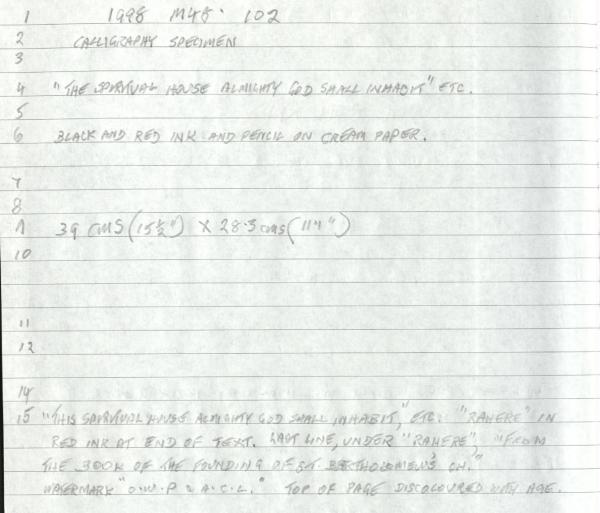 1 1998 M48. 102
2 CALLIGRAPHY SPECIMEN
3
4 "THE SPIRITUAL HOUSE ALMIGHTY GOD SHALL INHABIT" ETC.
5
6 BLACK AND RED INK AND PENCIL ON CREAM PAPER.
7
8
9 39 CMS (15½") X 28.3 cms (11")
10
11
12
14
15 "THIS SPIRITUAL HOUSE ALMIGHTY GOD SHALL INHABIT," ETC. "RAHERE" IN
RED INK AT END OF TEXT. LAST LINE, UNDER "RAHERE", "FROM
THE BOOK OF THE FOUNDING OF ST. BARTHOLOMEW'S CH."
WATERMARK "O.W.P & A.C.L." TOP OF PAGE DISCOLOURED WITH AGE.